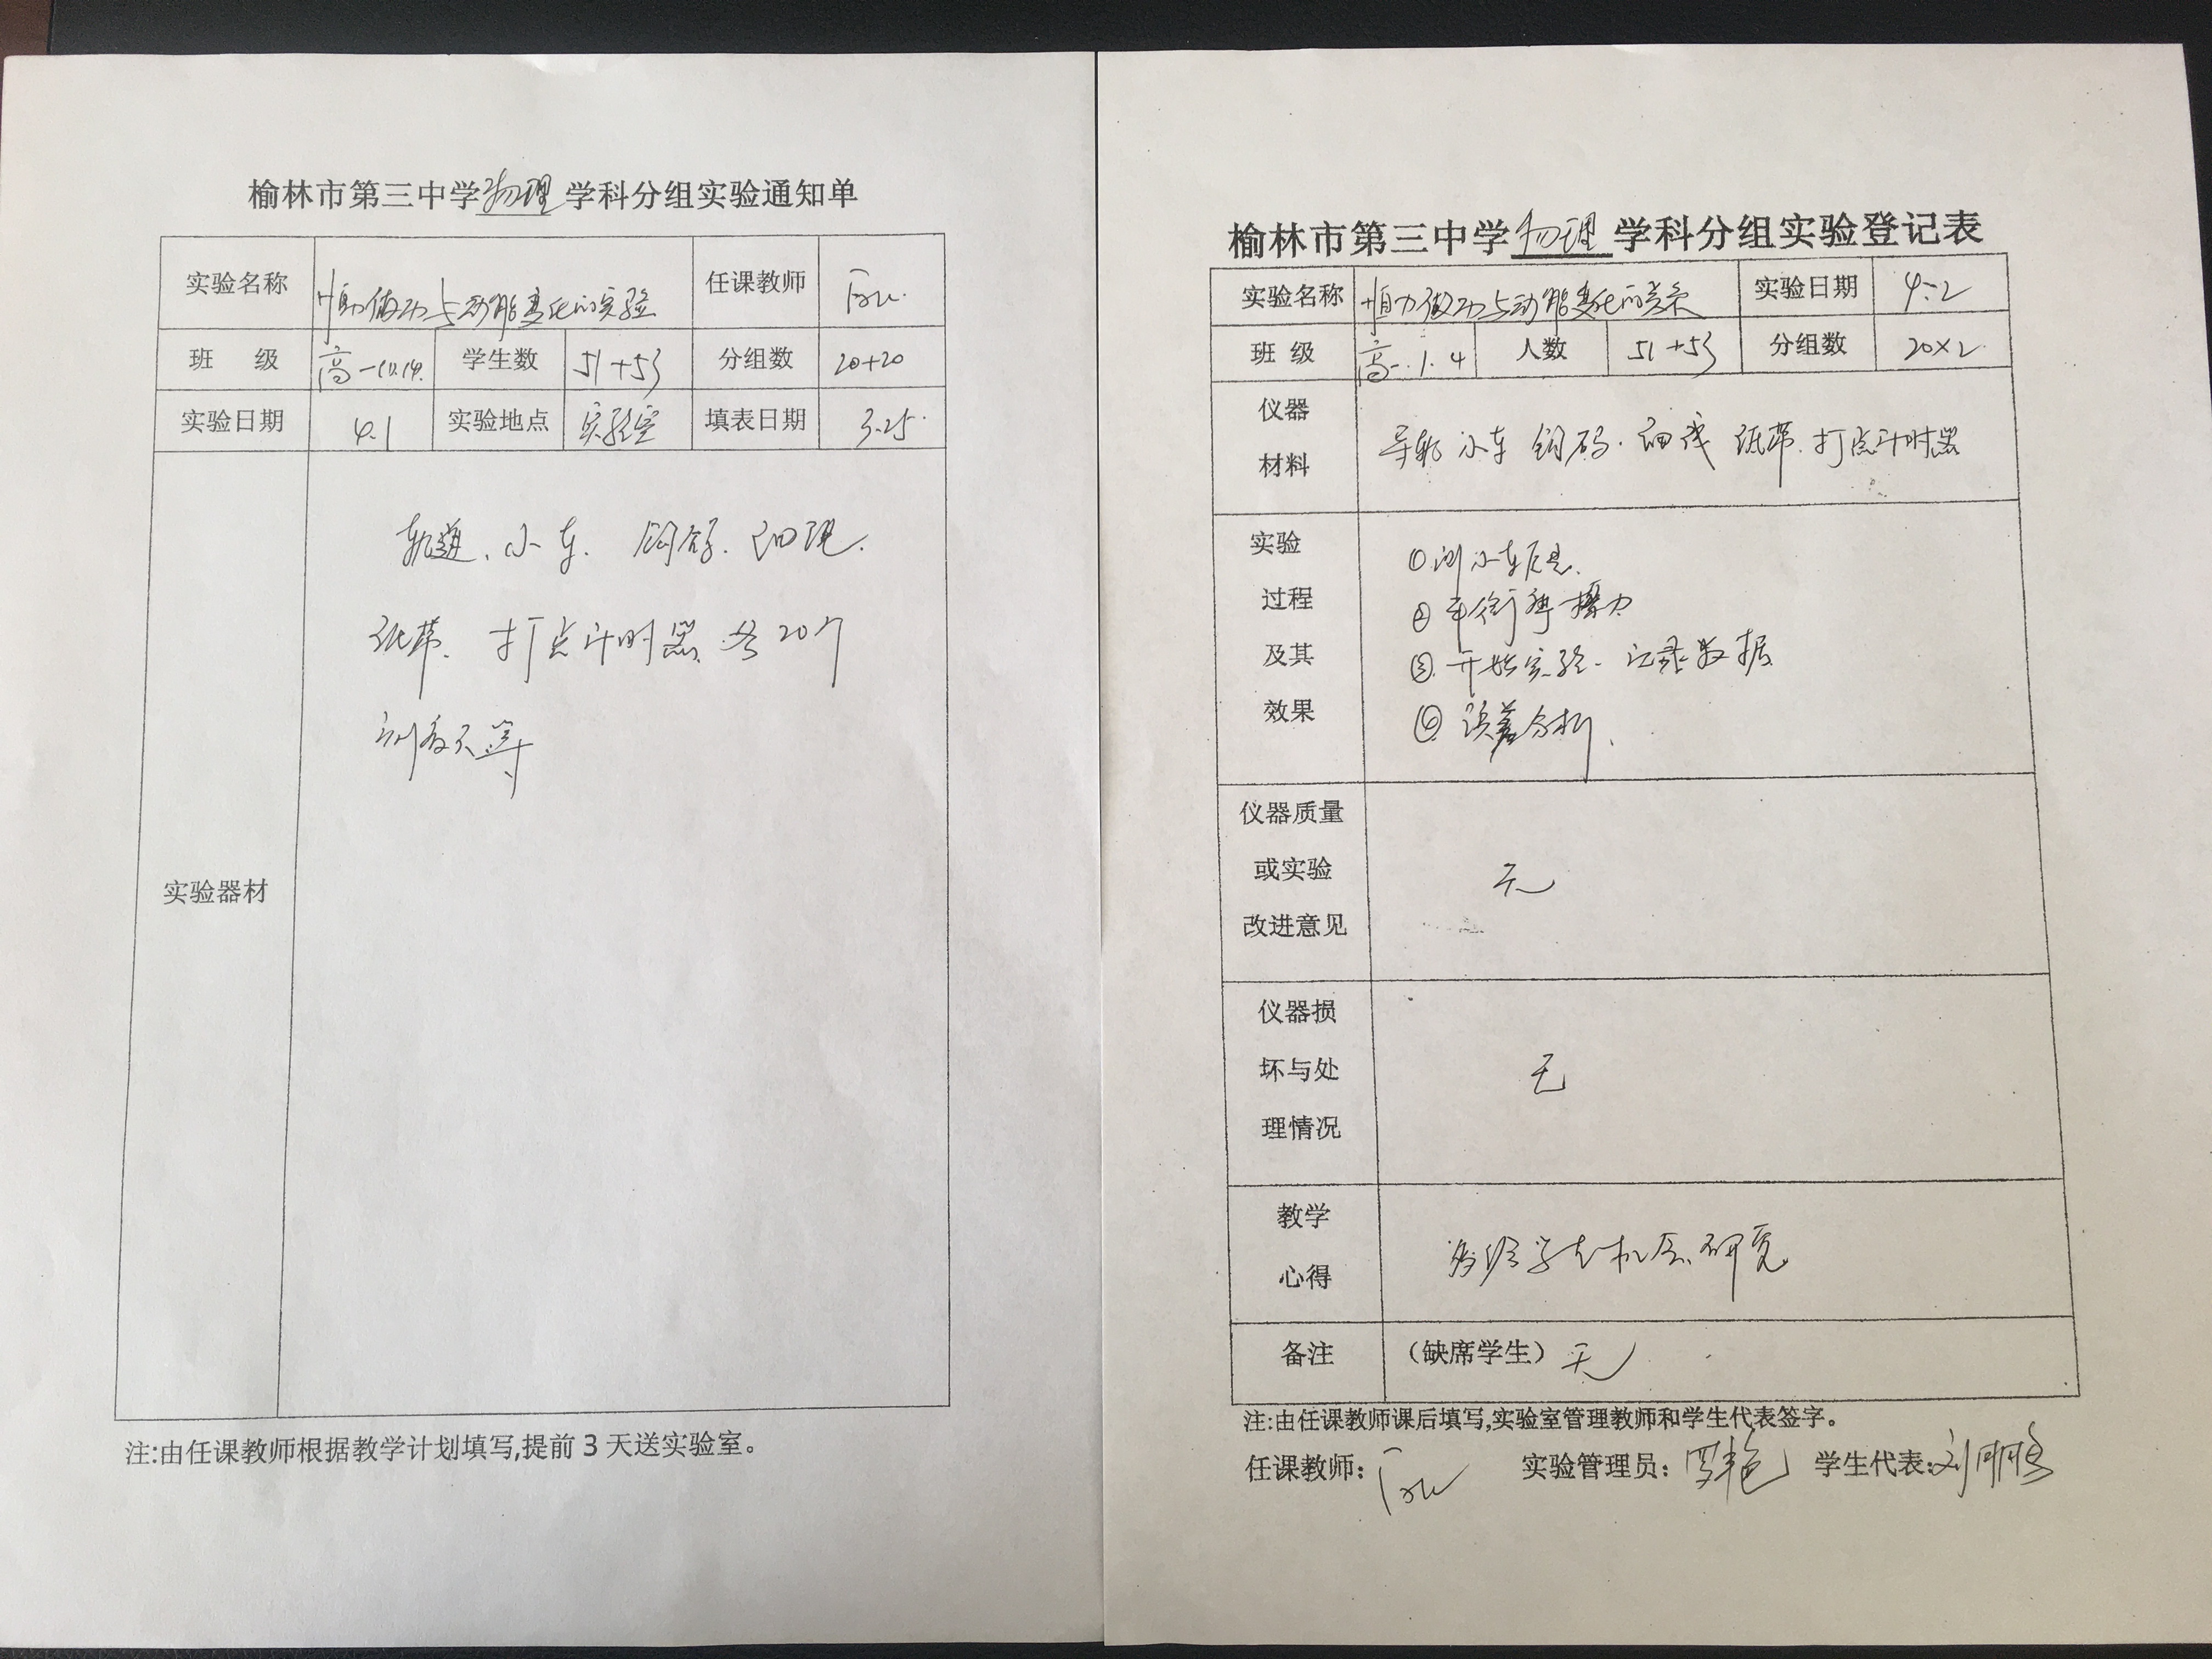 榆林市第三中学物理学科分组实验通知单
实验名称 恒力做功与动能变化的实验 任课教师
班 级 高一 学生数 51+53 分组数 20+20
实验日期 4.1 实验地点 实验室 填表日期 3.25
实验器材
轨道、小车、钩码、细绳
纸带、打点计时器、各20个
注:由任课教师根据教学计划填写,提前3天送实验室。
榆林市第三中学物理学科分组实验登记表
实验名称 恒力做功与动能变化的关系 实验日期 4.2
班 级 高一.1.4 人数 51+53 分组数 20×2
仪器
材料
导轨 小车 钩码.细线 纸带.打点计时器
实验
过程
及其
效果
①测小车质量
②平衡摩擦力
③开始实验.记录数据
④误差分析
仪器质量
或实验
改进意见
无
仪器损
坏与处
理情况
无
教学
心得
学生机会研究
备注 (缺席学生) 无
注:由任课教师课后填写,实验室管理教师和学生代表签字。
任课教师: 实验管理员:罗艳 学生代表:刘